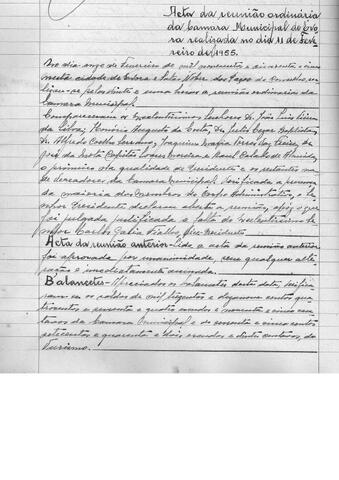 Acta da reunião ordinária
da Camara Municipal de Evo-
ra realizada no dia 11 de Feve-
reiro de 1955.
No dia onze de Fevereiro de mil novecentos e cincoenta e cinco
nesta cidade de Evora e Sala Nobre dos Paços do Concelho, rea-
lizou-se pelas e uma horas a reunião ordinaria da
Camara Municipal.
Compareceram os Excelentissimos Senhores Dr. João Luis
da Silva, Honório Augusto da Costa, Dr. Julio Cezar Baptista,
Dr. Alfredo Coelho Serrano, Joaquim Maria Torres Vaz Freire, Dr.
José da Mota Capitão Lopes Moreira e Raul de Almeida,
o primeiro na qualidade de Presidente e os restantes na
de vereadores da Camara Municipal. Verificada a presença
da maioria dos membros do Corpo Administrativo, o Se-
nhor Presidente declarou aberta a reunião, após o que
foi julgada justificada a falta do Excelentissimo Se-
nhor Carlos Fialho, Vice-Presidente.
Acta da reunião anterior - Lida a acta da reunião anterior
foi aprovada por unanimidade, sem qualquer alte-
ração e imediatamente assinada.
Balancetes - Apreciados os balancetes desta data, verifica-
ram-se os saldos de mil trezentos e dezanove contos qua-
trocentos e sessenta e quatro escudos e noventa e cinco cen-
tavos da Camara Municipal e de sessenta e cinco contos
setecentos e quarenta e dois escudos e oitenta centavos, do
Turismo.